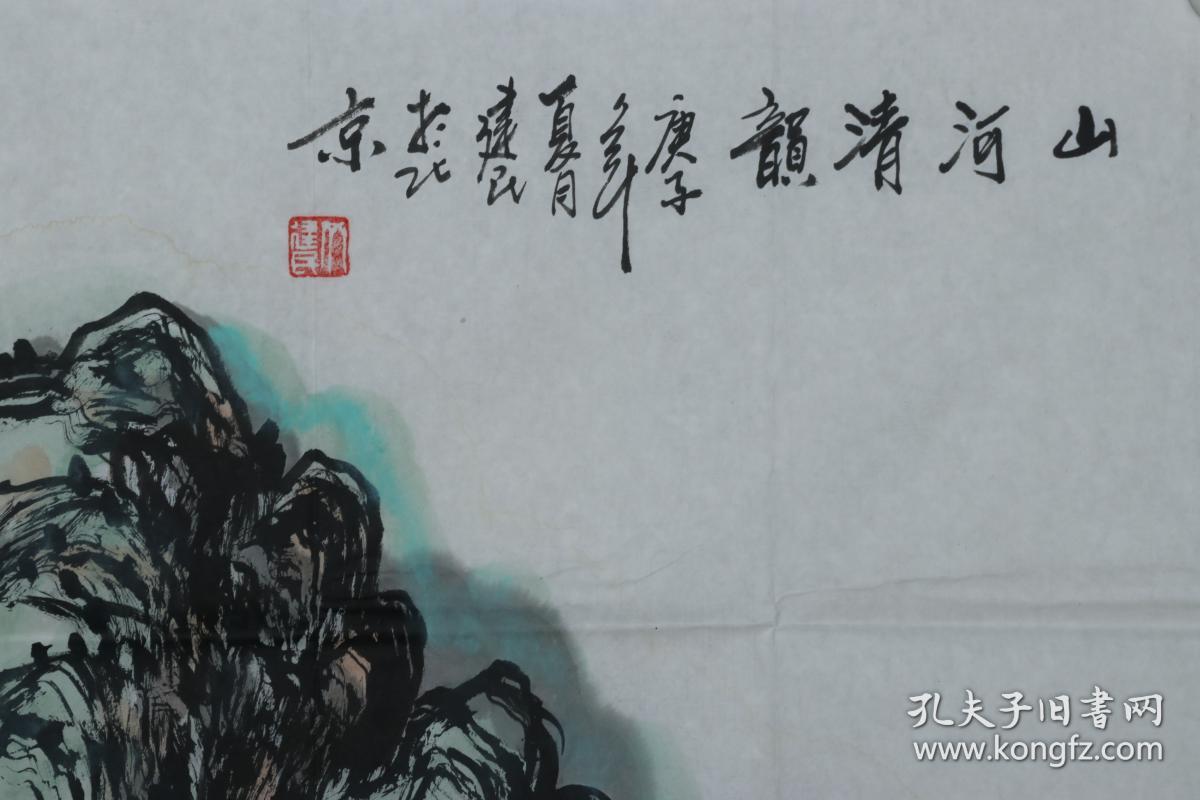 山河清韻
庚子
年
夏月
建民
於北
京
孔夫子旧書网
www.kongfz.com